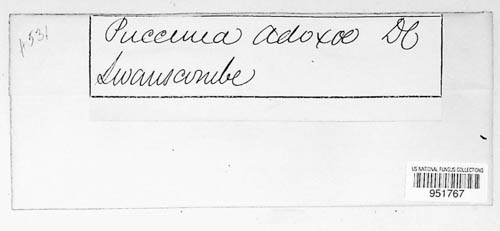 p531
Puccinia Adoxoe DC
Swanscombe
US NATIONAL FUNGUS COLLECTIONS
951767